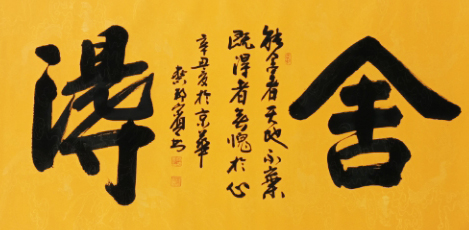 舍
能舍者天地不棄
既淂者無愧於心
辛丑夏於京華
淂